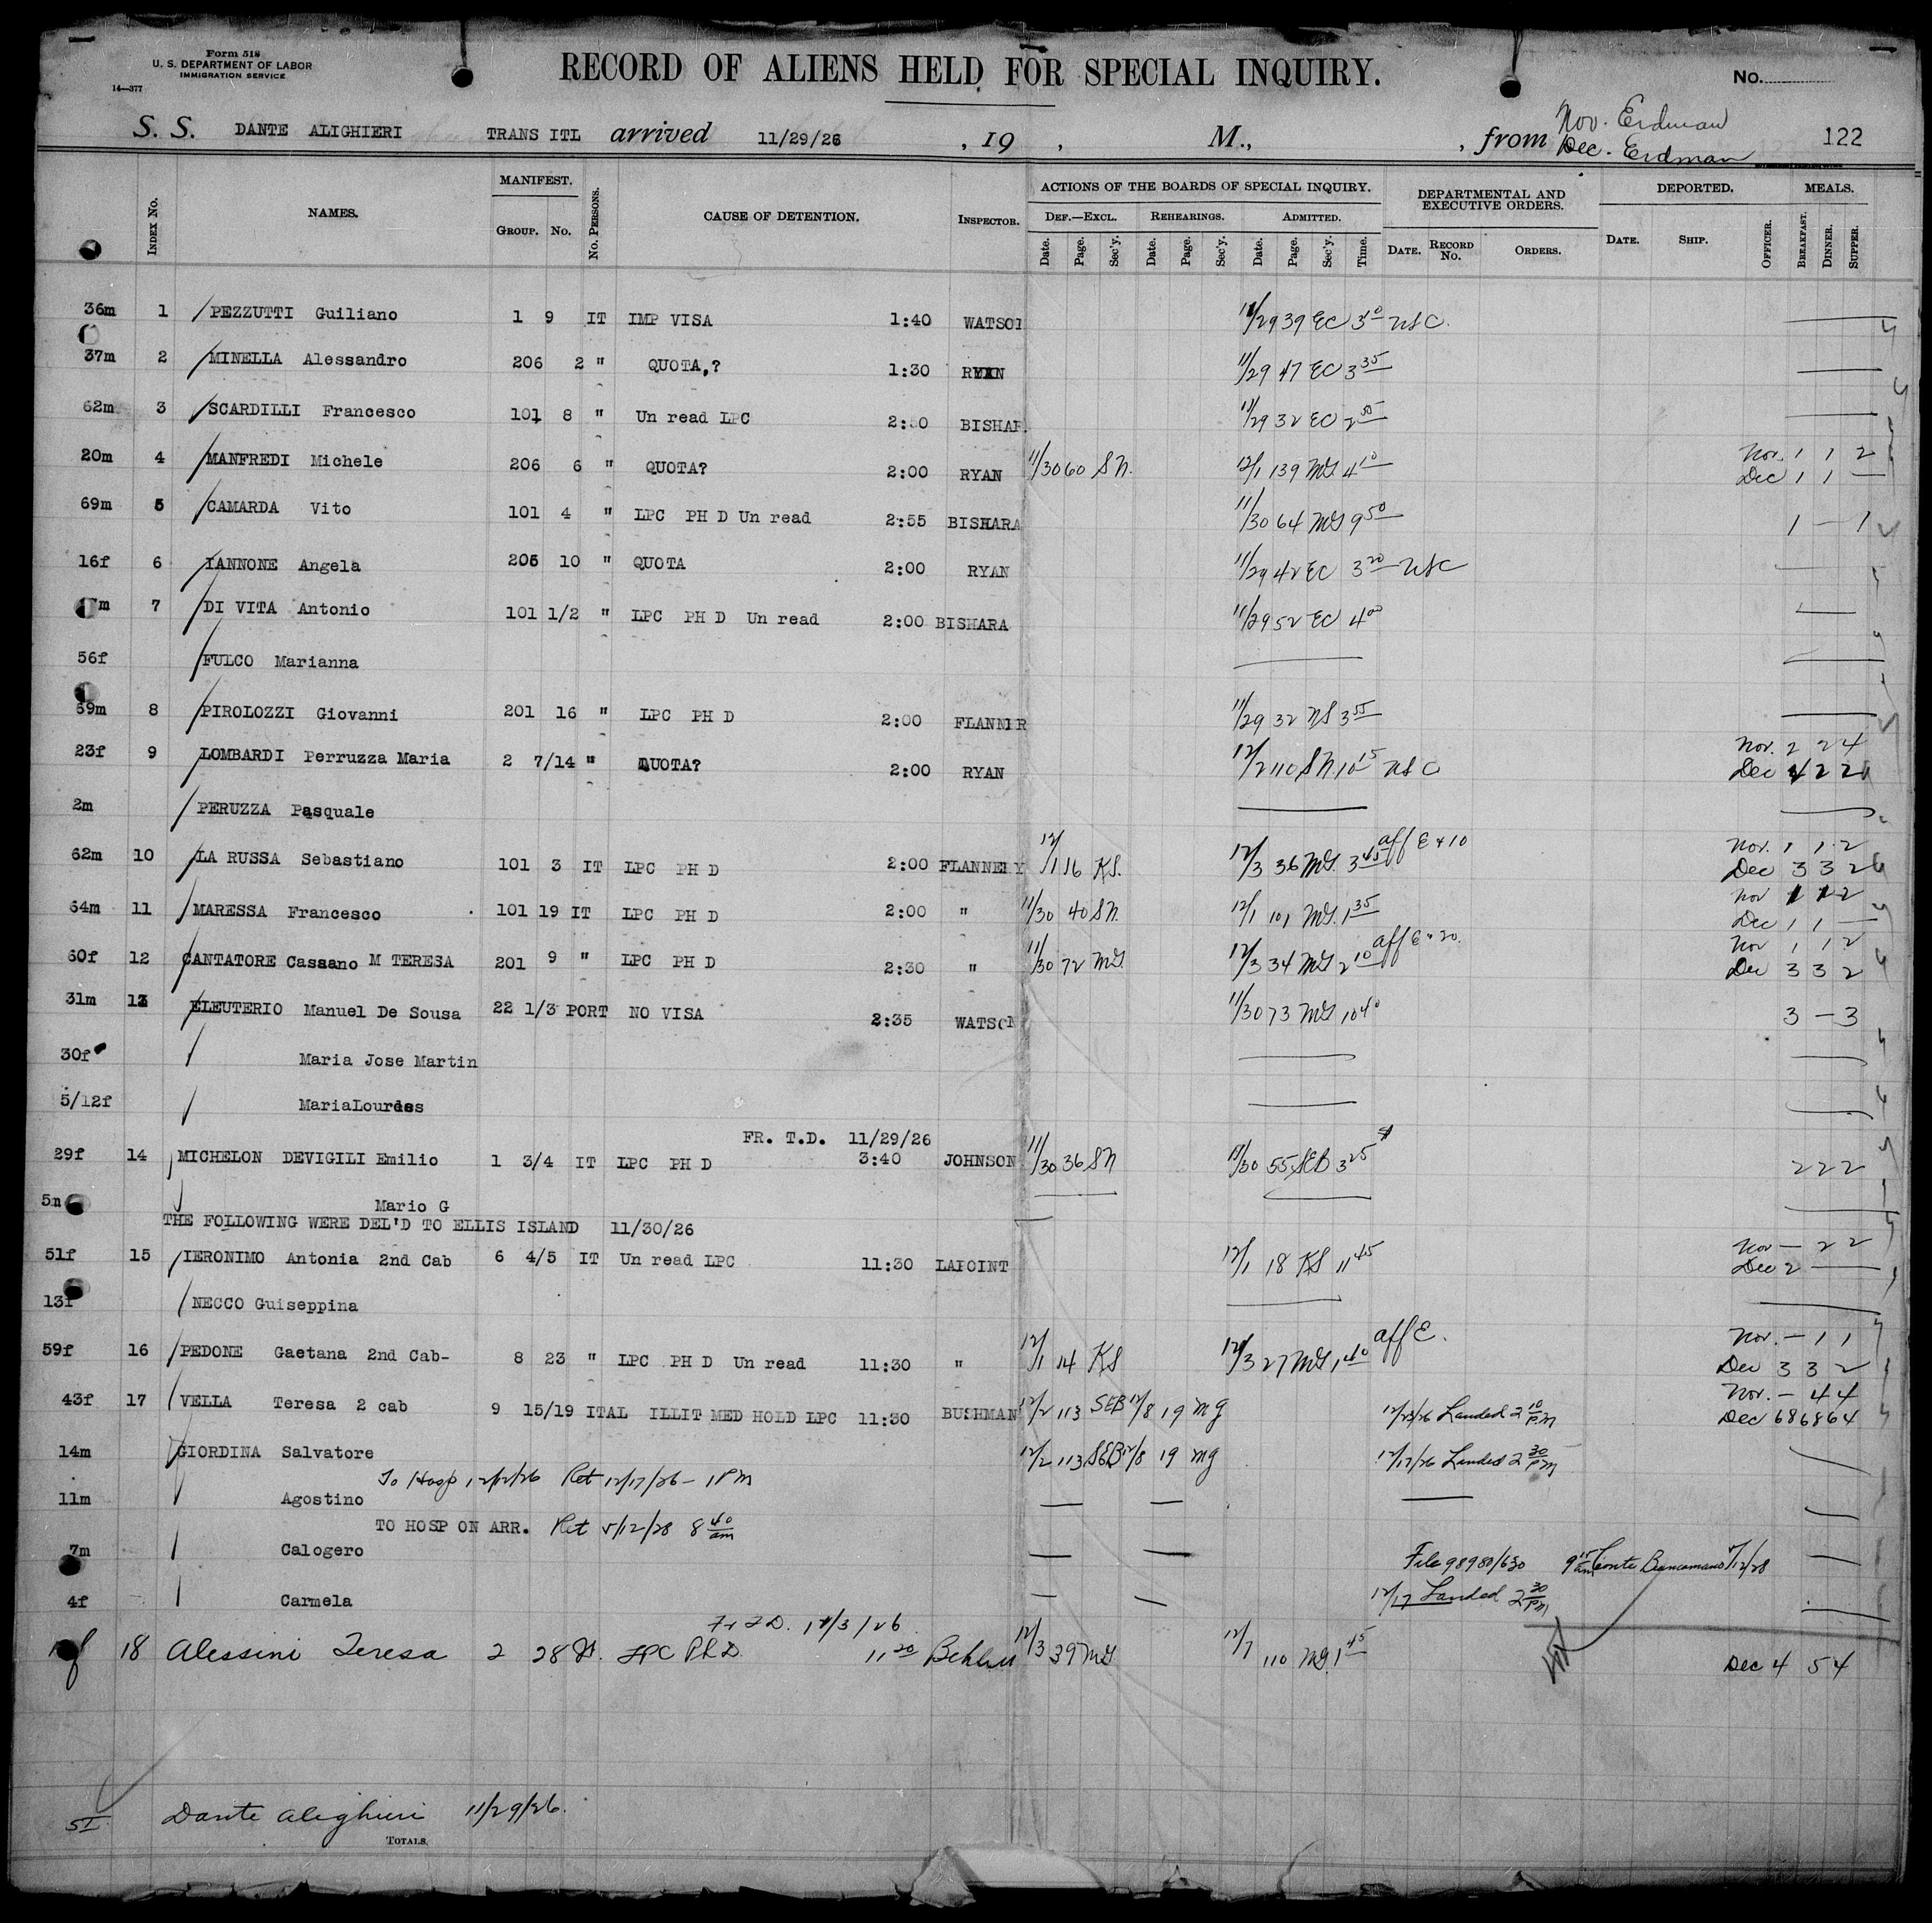 Form 518
U. S. DEPARTMENT OF LABOR
IMMIGRATION SERVICE
14—377
RECORD OF ALIENS HELD FOR SPECIAL INQUIRY.
No.
S. S. DANTE ALIGHIERI TRANS ITL arrived 11/29/26 , 19 , M., , from Nov. Erdman
Dec. Erdman 122
INDEX No. NAMES. MANIFEST. GROUP. No. No. PERSONS. CAUSE OF DETENTION. INSPECTOR. ACTIONS OF THE BOARDS OF SPECIAL INQUIRY. DEF.—EXCL. Date. Page. Sec'y. REHEARINGS. Date. Page. Sec'y. ADMITTED. Date. Page. Sec'y. Time. DEPARTMENTAL AND EXECUTIVE ORDERS. DATE. RECORD No. ORDERS. DEPORTED. DATE. SHIP. OFFICER. MEALS. BREAKFAST. DINNER. SUPPER.
36m 1 PEZZUTTI Guiliano 1 9 IT IMP VISA 1:40 WATSO 11/29 39 EC 3 USC.
37m 2 MINELLA Alessandro 206 2 " QUOTA,? 1:30 RYAN 11/29 47 EC 3 35
62m 3 SCARDILLI Francesco 101 8 " Un read LPC BISHAR 11/29 32 EC 2
20m 4 MANFREDI Michele 206 6 " QUOTA? 2:00 RYAN 11/30 60 SN. 12/1 139 MG 4 10 Nov. 1 1 2
Dec 1 1 —
69m 5 CAMARDA Vito 101 4 " LPC PH D Un read 2:55 BISHARA 11/30 64 MG 9 50 1 — 1
16f 6 IANNONE Angela 205 10 " QUOTA 2:00 RYAN 11/29 42 EC 3 20 USC
m 7 DI VITA Antonio 101 1/2 " LPC PH D Un read 2:00 BISHARA 11/29 52 EC 4 00
56f FULCO Marianna
59m 8 PIROLOZZI Giovanni 201 16 " LPC PH D 2:00 FLANNER 11/29 32 NS 3 55
23f 9 LOMBARDI Perruzza Maria 2 7/14 " QUOTA? 2:00 RYAN 12/2 110 SN. 10 15 USC Nov. 2 2 4
Dec 4 2 2
2m PERUZZA Pasquale
62m 10 LA RUSSA Sebastiano 101 3 IT LPC PH D 2:00 FLANNERY 12/1 16 KS. 12/3 36 MG. 3 45 aff E + 10 Nov. 1 1 2
Dec 3 3 2
64m 11 MARESSA Francesco 101 19 IT LPC PH D 2:00 " 11/30 40 SN. 12/1 101 MG. 1 35 Nov 1 1 2
Dec 1 1 —
60f 12 CANTATORE Cassano M TERESA 201 9 " LPC PH D 2:30 " 11/30 72 MG 12/3 34 MG 2 10 aff E + 20. Nov 1 1 2
Dec 3 3 2
31m 13 ELEUTERIO Manuel De Sousa 22 1/3 PORT NO VISA 2:35 WATSON 11/30 73 MG 10 40 3 — 3
30f Maria Jose Martin
5/12f MariaLourdes
FR. T.D. 11/29/26
29f 14 MICHELON DEVIGILI Emilio 1 3/4 IT LPC PH D 3:40 JOHNSON 11/30 36 SN 11/30 55 SEB 3 25 2 2 2
5m Mario G
THE FOLLOWING WERE DEL'D TO ELLIS ISLAND 11/30/26
51f 15 IERONIMO Antonia 2nd Cab 6 4/5 IT Un read LPC 11:30 LAPOINT 12/1 18 KS 11 45 Nov — 2 2
Dec 2 —
13f NECCO Guiseppina
59f 16 PEDONE Gaetana 2nd Cab- 8 23 " LPC PH D Un read 11:30 " 12/1 14 KS 12/3 27 MG 1 40 aff E. Nov. — 1 1
Dec 3 3 2
43f 17 VELLA Teresa 2 cab 9 15/19 ITAL ILLIT MED HOLD LPC 11:30 BUSHMAN 12/2 113 SEB 12/8 19 MG 12/23/26 Landed 2 10 PM Nov. — 4 4
Dec 68 68 64
14m GIORDINA Salvatore 12/2 113 SEB 12/8 19 MG 12/17/26 Landed 2 30 PM
To Hosp 12/12/26 Ret 12/17/26 — 1 PM
11m Agostino
TO HOSP ON ARR. Ret 5/12/28 8 40 am
7m Calogero File 98980/630 9 15 am Conte Biancamano 5/12/28
4f Carmela 12/17 Landed 2 30 PM
Fr T.D. 12/3/26
f 18 Alessini Teresa 2 28 It. LPC Ph D. 11 20 12/3 39 MG 12/7 110 MG. 1 45 Dec 4 5 4
SI Dante Alighieri 11/29/26.
TOTALS.